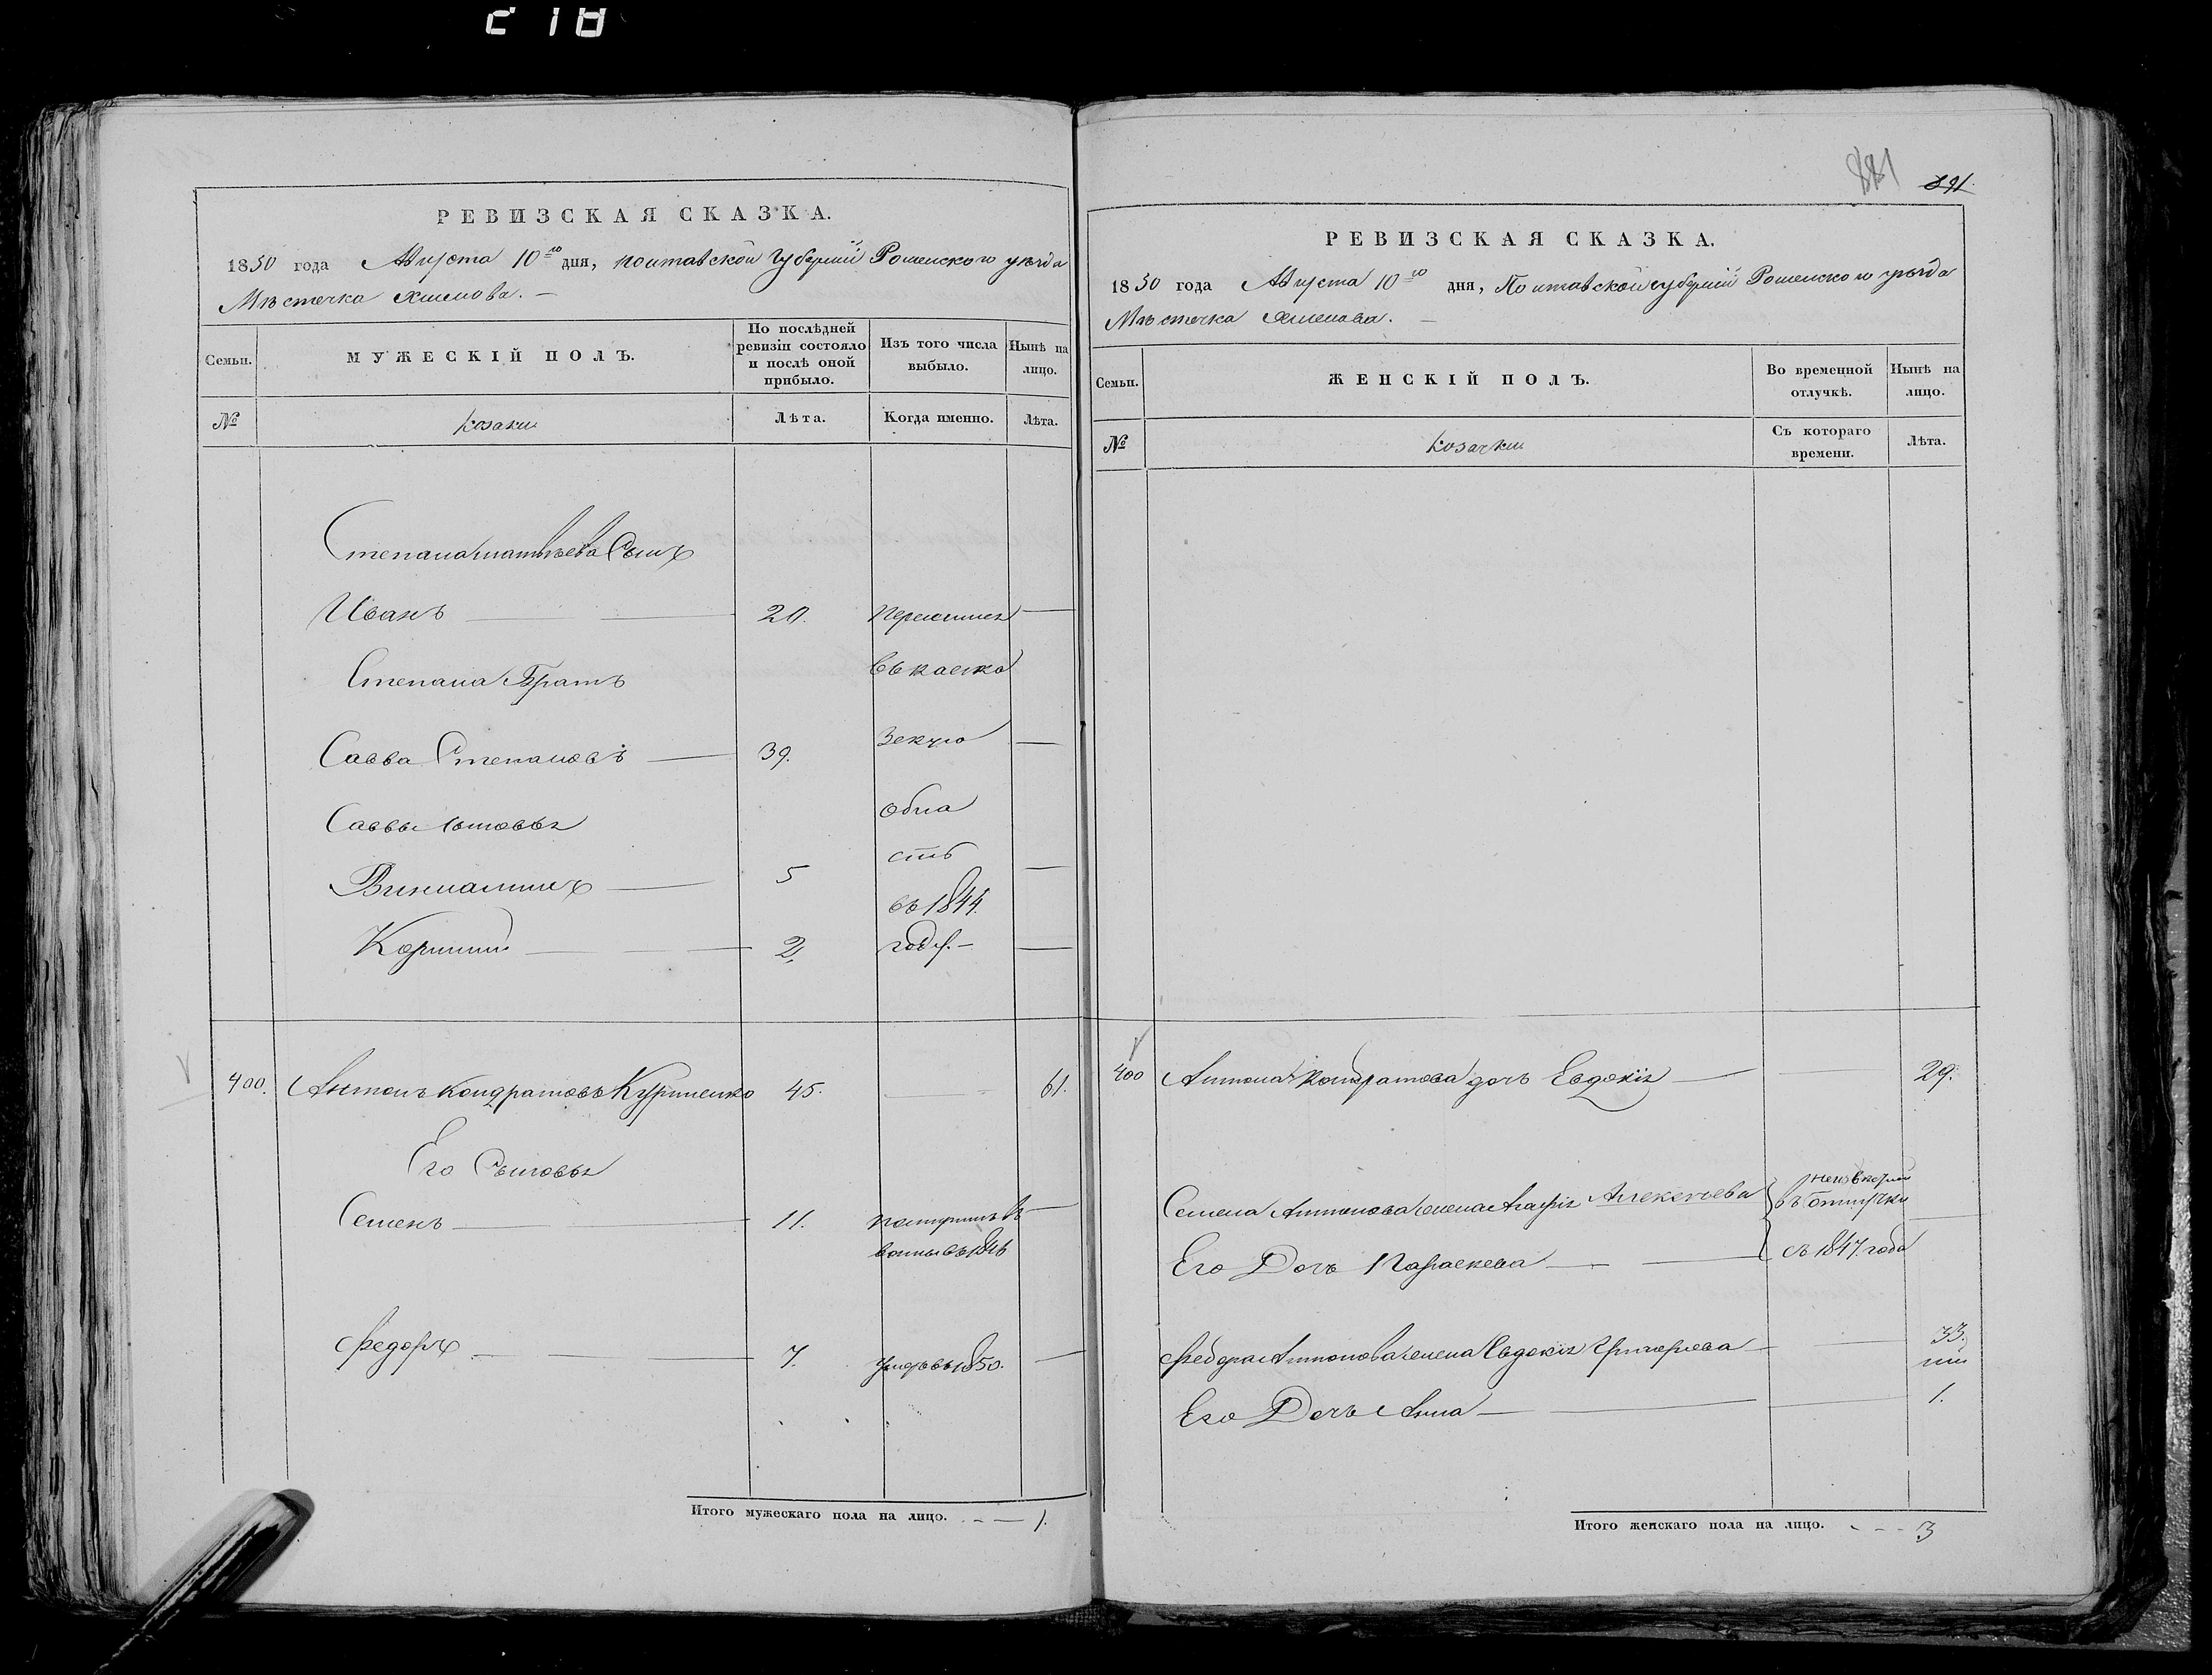 218
РЕВИЗСКАЯ СКАЗКА.
1850 года Августа 10го дня, Полтавской Губерніи Роменского уѣзда
Мѣстечка Хмелова. —
Семьи.
МУЖЕСКІЙ ПОЛЪ.
По послѣдней ревизіи состояло и послѣ оной прибыло.
Изъ того числа выбыло.
Нынѣ на лицо.
№
Козаки
Лѣта.
Когда именно.
Лѣта.
Степана Матвѣева Сынъ
Иванъ — 20. Переселенъ —
Степана Братъ въ Кавка
Савва Степановъ — 39. зскую —
Саввы Сыновья обла
сть
5 —
въ 1844.
2. году. —
400. Антонъ Кондратовъ Куриленко 45. — 61.
Его Сыновья
Семенъ — 11. —
Федоръ — 7. умеръ въ 1850. —
Итого мужескаго пола на лицо. — 1.
881 891.
РЕВИЗСКАЯ СКАЗКА.
1850 года Августа 10го дня, Полтавской губерніи Роменского уѣзда
Мѣстечка Хмелова. —
Семьи.
ЖЕНСКІЙ ПОЛЪ.
Во временной отлучкѣ.
Нынѣ на лицо.
№
Козачки
Съ котораго времени.
Лѣта.
400 Антона Кондратова дочь Евдокія — 29.
Семена Антонова жена Агафія Алексѣева
въ отлучки
Его Дочь Параскева — съ 1847 года
Федора Антонова жена Евдокія Григорьева — 33.
Его Дочь Анна — 1.
Итого женскаго пола на лицо. — 3